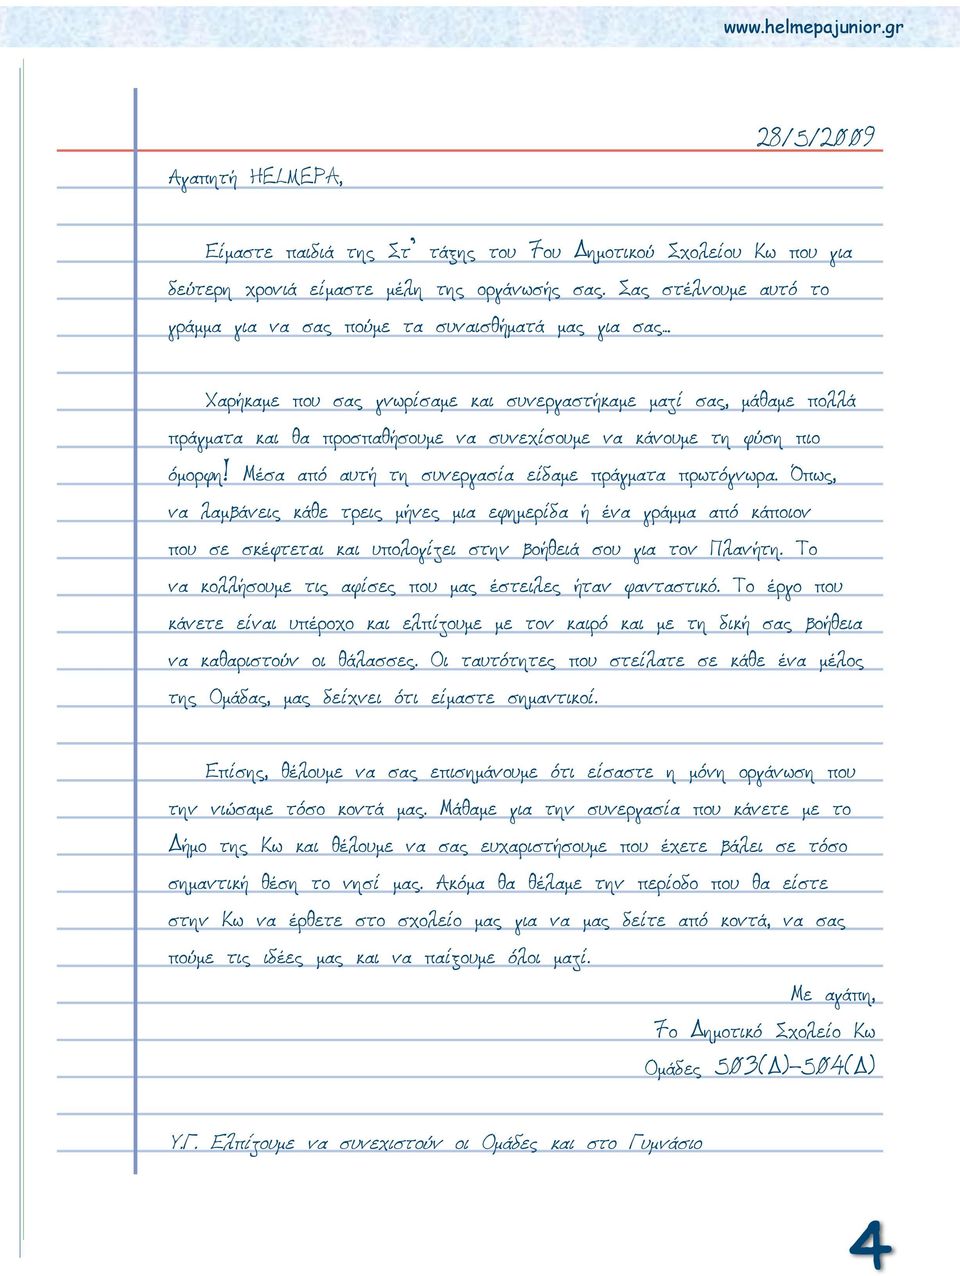 www.helmepajunior.gr
28/5/2009
Αγαπητή HELMEPA,
Είμαστε παιδιά της Στ’ τάξης του 7ου Δημοτικού Σχολείου Κω που για
δεύτερη χρονιά είμαστε μέλη της οργάνωσής σας. Σας στέλνουμε αυτό το
γράμμα για να σας πούμε τα συναισθήματά μας για σας...
Χαρήκαμε που σας γνωρίσαμε και συνεργαστήκαμε μαζί σας, μάθαμε πολλά
πράγματα και θα προσπαθήσουμε να συνεχίσουμε να κάνουμε τη φύση πιο
όμορφη! Μέσα από αυτή τη συνεργασία είδαμε πράγματα πρωτόγνωρα. Όπως,
να λαμβάνεις κάθε τρεις μήνες μια εφημερίδα ή ένα γράμμα από κάποιον
που σε σκέφτεται και υπολογίζει στην βοήθειά σου για τον Πλανήτη. Το
να κολλήσουμε τις αφίσες που μας έστειλες ήταν φανταστικό. Το έργο που
κάνετε είναι υπέροχο και ελπίζουμε με τον καιρό και με τη δική σας βοήθεια
να καθαριστούν οι θάλασσες. Οι ταυτότητες που στείλατε σε κάθε ένα μέλος
της Ομάδας, μας δείχνει ότι είμαστε σημαντικοί.
Επίσης, θέλουμε να σας επισημάνουμε ότι είσαστε η μόνη οργάνωση που
την νιώσαμε τόσο κοντά μας. Μάθαμε για την συνεργασία που κάνετε με το
Δήμο της Κω και θέλουμε να σας ευχαριστήσουμε που έχετε βάλει σε τόσο
σημαντική θέση το νησί μας. Ακόμα θα θέλαμε την περίοδο που θα είστε
στην Κω να έρθετε στο σχολείο μας για να μας δείτε από κοντά, να σας
πούμε τις ιδέες μας και να παίξουμε όλοι μαζί.
Με αγάπη,
7ο Δημοτικό Σχολείο Κω
Ομάδες 503(Δ)-504(Δ)
Υ.Γ. Ελπίζουμε να συνεχιστούν οι Ομάδες και στο Γυμνάσιο
4